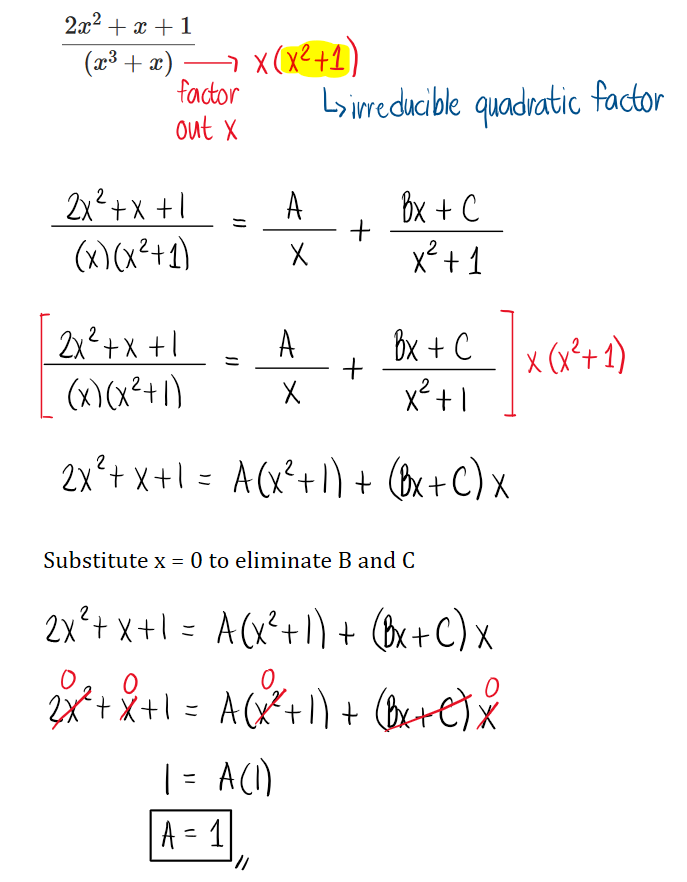 2x² + x + 1 / (x³ + x) → x(x²+1)
factor out x
↳ irreducible quadratic factor
2x²+x+1 / (x)(x²+1) = A / x + Bx + C / x² + 1
[2x²+x+1 / (x)(x²+1) = A / x + Bx + C / x² + 1] x(x²+1)
2x²+x+1 = A(x²+1) + (Bx+C)x
Substitute x = 0 to eliminate B and C
2x²+x+1 = A(x²+1) + (Bx+C)x
0 0 0 0
2x²+x+1 = A(x²+1) + (Bx+C)x
1 = A(1)
A = 1 //